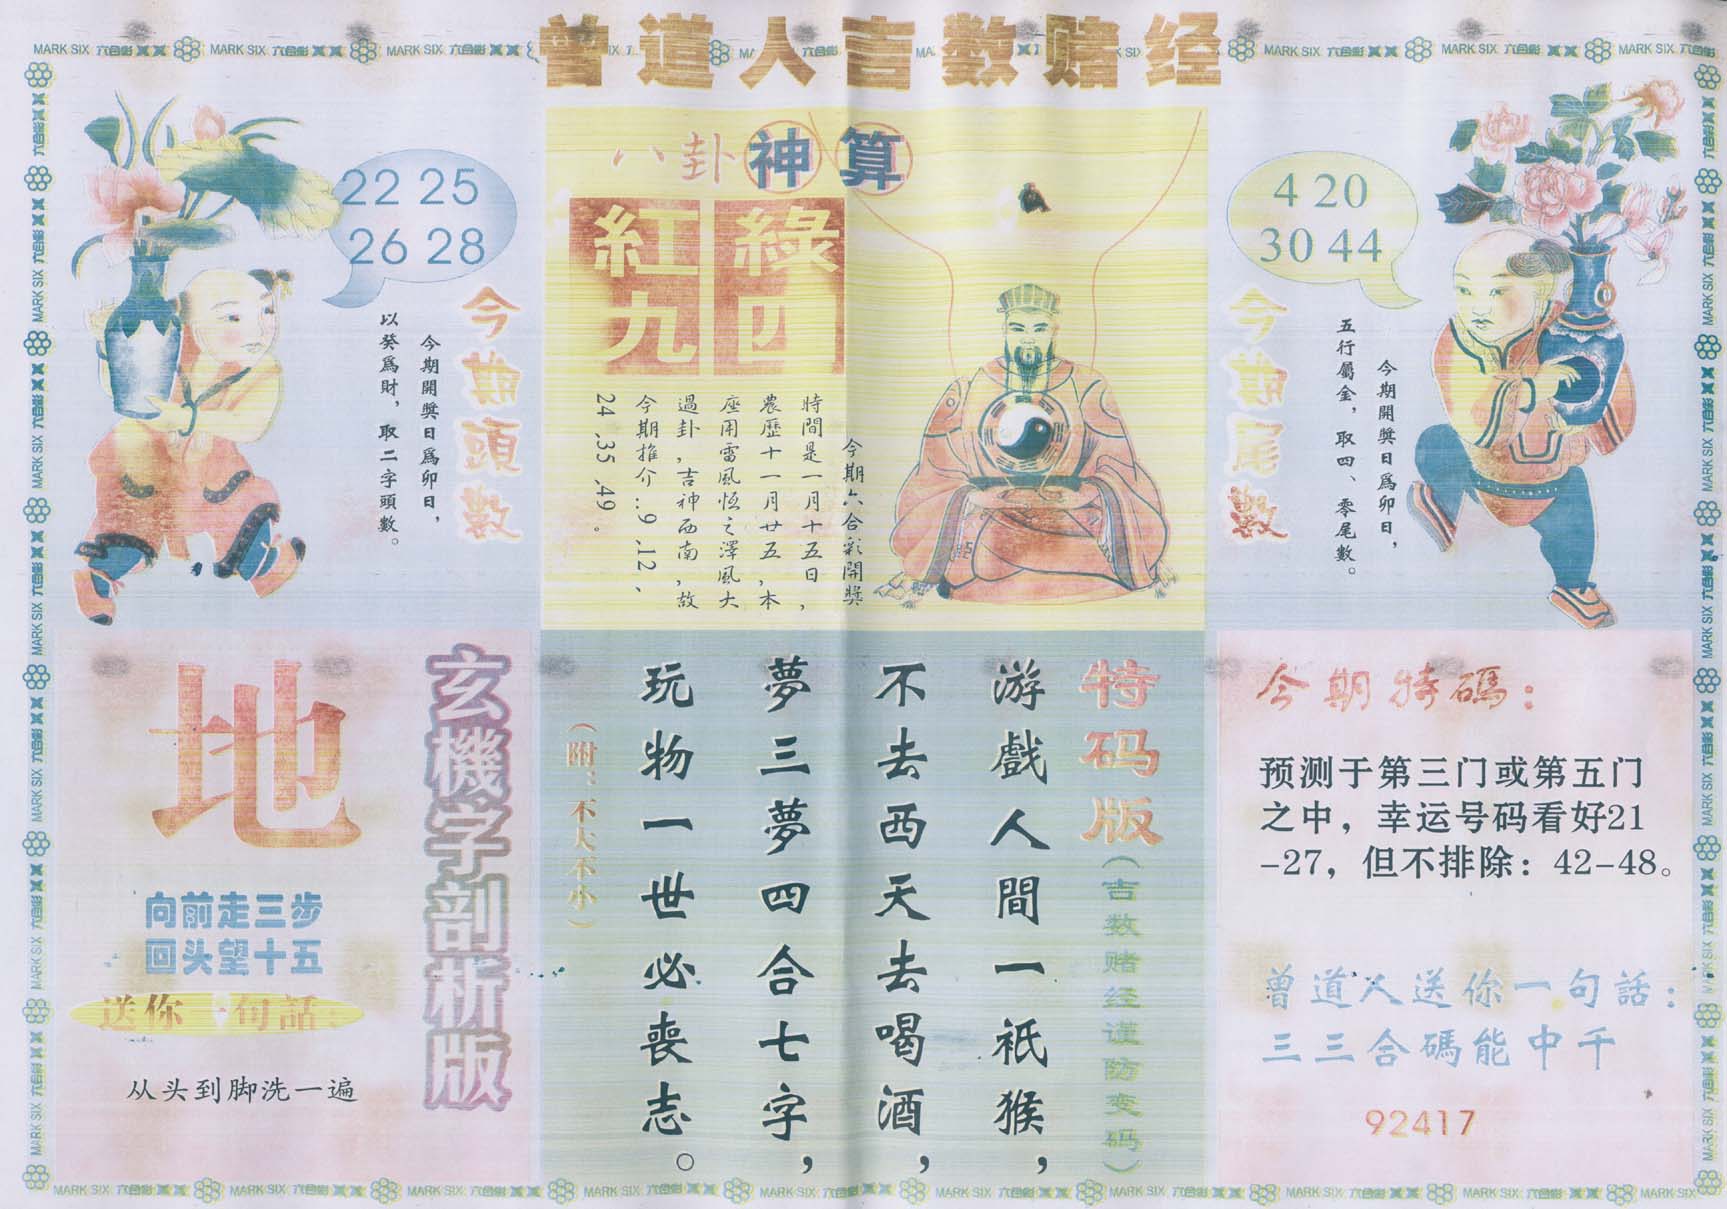 曾道人吉数赌经
MARK SIX 六合彩
22 25
26 28
今期頭數
今期開獎日爲卯日，
以癸爲財，取二字頭數。
八卦神算
紅九
綠四
今期六合彩開獎
時間是一月十五日，
農歷十一月廿五，本
座用雷風恆之澤風大
過卦，吉神西南，故
今期推介:9、12、
24、35、49。
4 20
30 44
今期尾數
今期開獎日爲卯日，
五行屬金，取四、零尾數。
玄機字剖析版
地
向前走三步
回头望十五
送你一句話：
从头到脚洗一遍
特码版
（吉数赌经谨防变码）
游戲人間一祇猴，
不去西天去喝酒，
夢三夢四合七字，
玩物一世必喪志。
（附：不大不小）
今期特碼：
预测于第三门或第五门
之中，幸运号码看好21
-27，但不排除：42-48。
曾道人送你一句話：
三三合碼能中千
92417